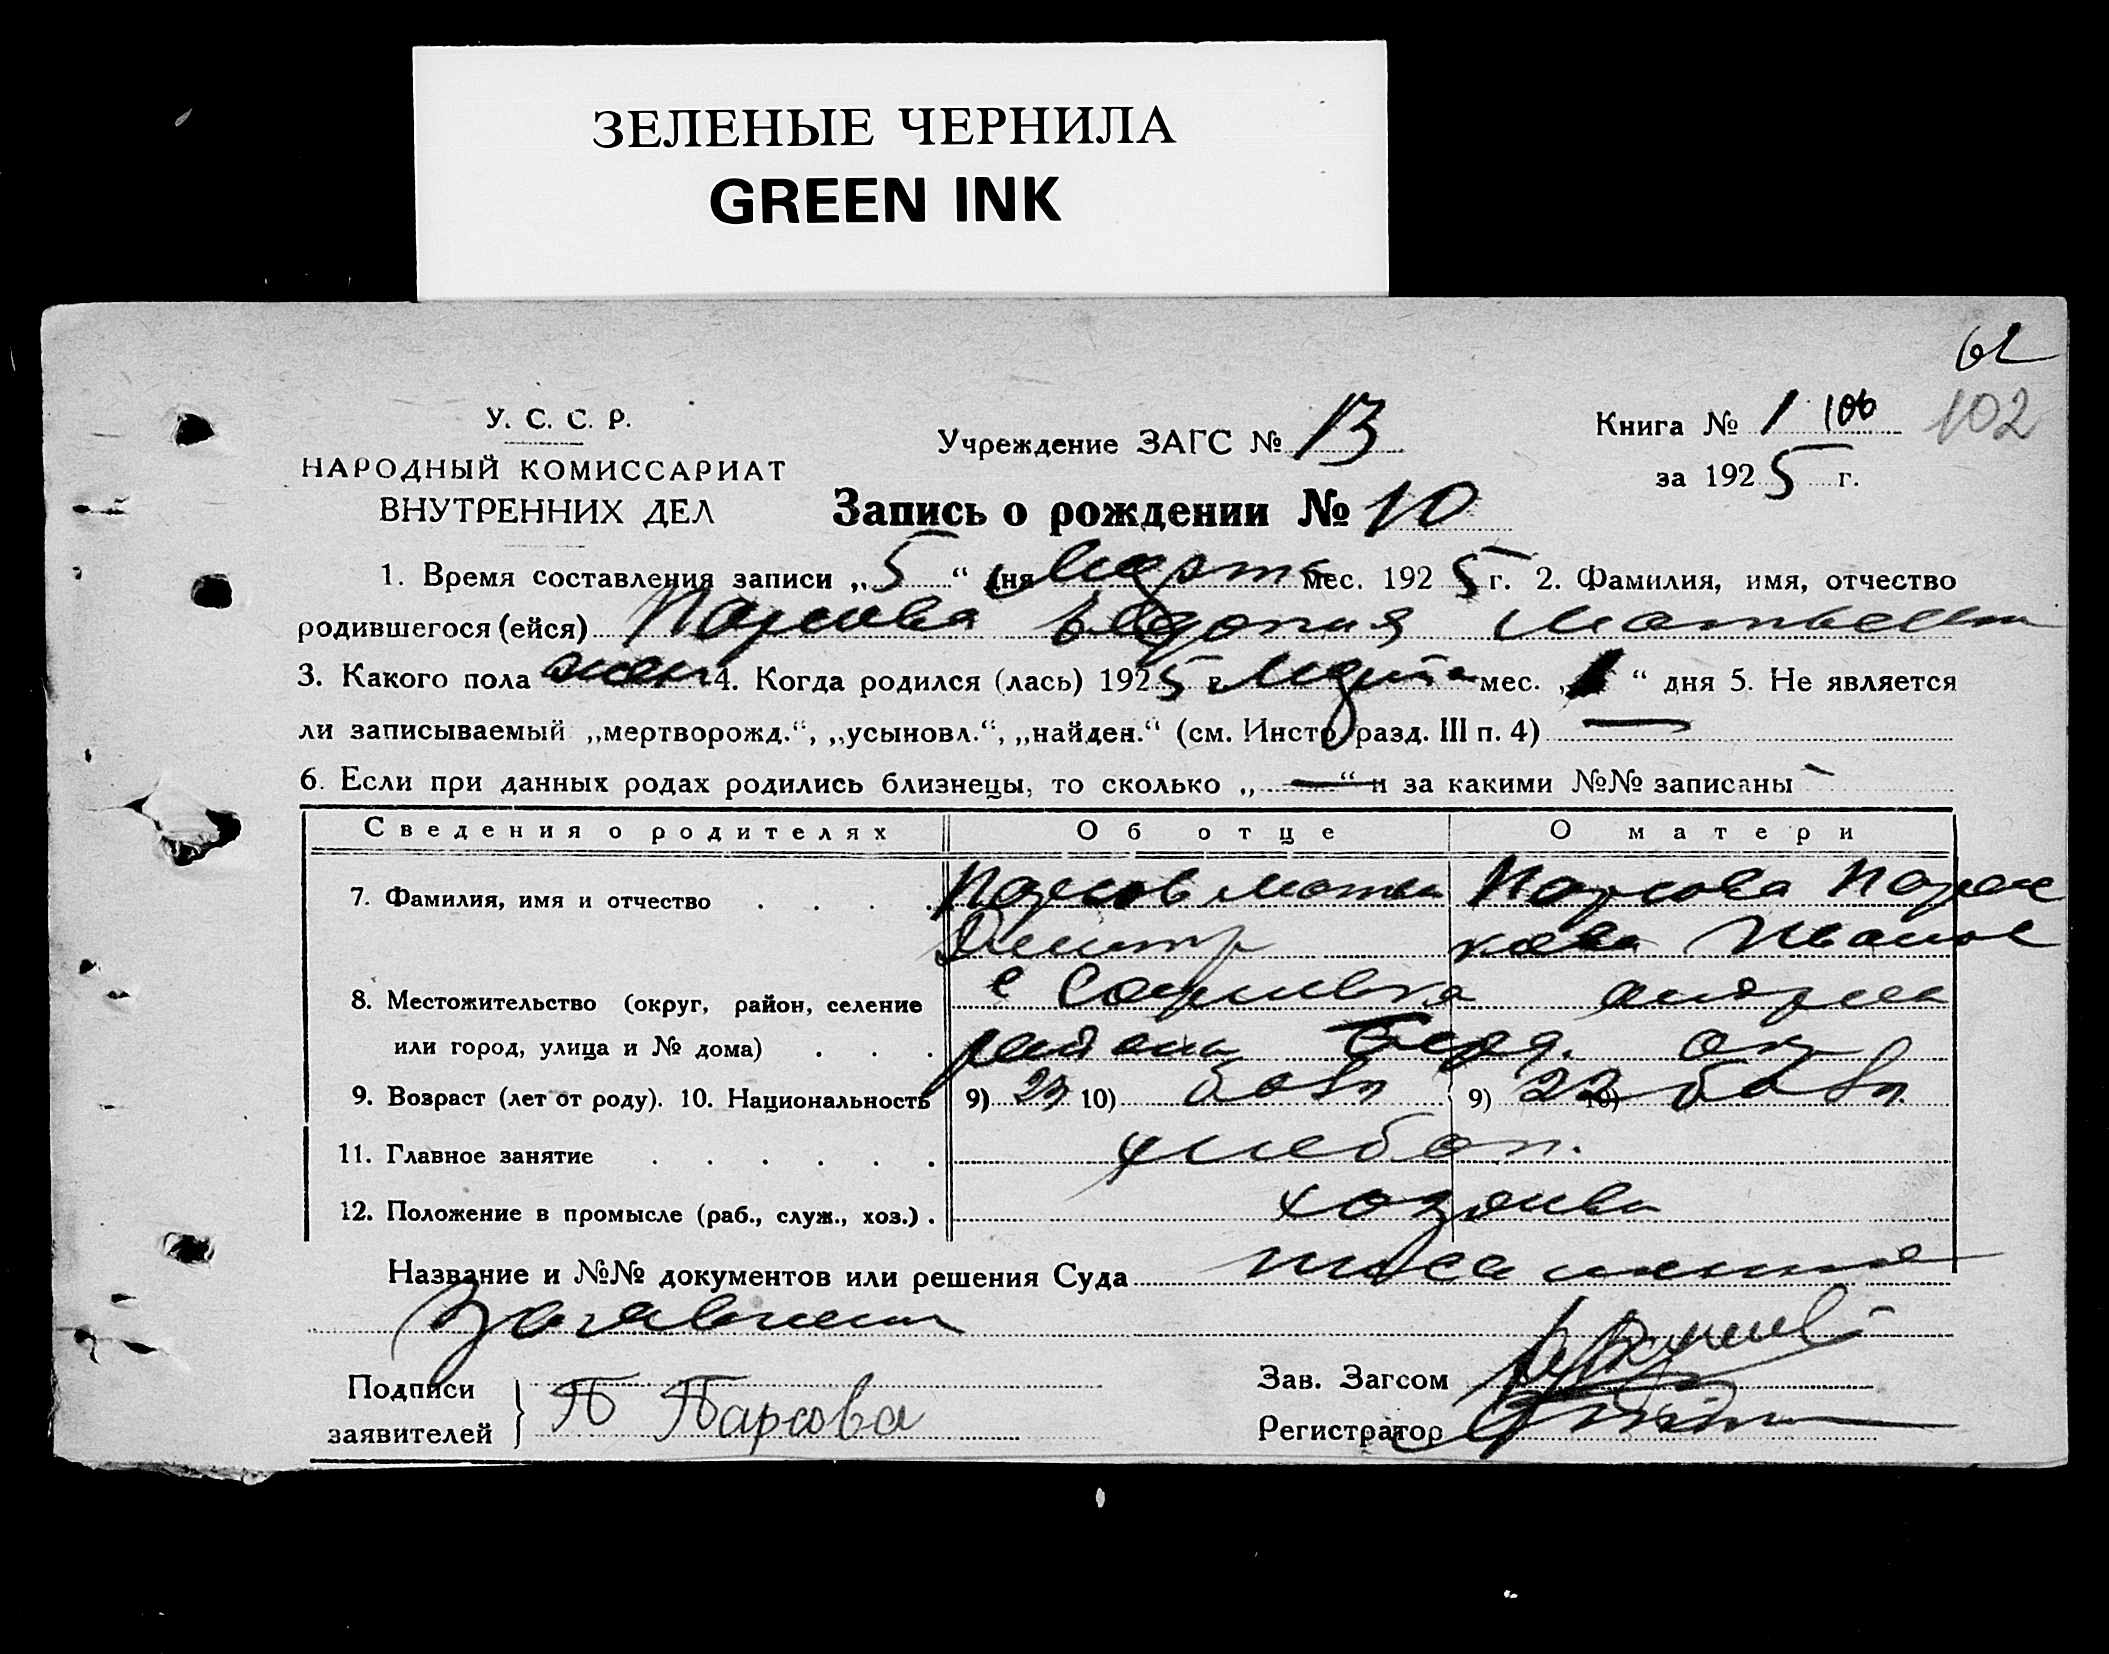 ЗЕЛЕНЫЕ ЧЕРНИЛА
GREEN INK
62
У. С. С. Р.
НАРОДНЫЙ КОМИССАРИАТ
ВНУТРЕННИХ ДЕЛ
Учреждение ЗАГС № 13
Книга № 1 106 102
за 1925 г.
Запись о рождении № 10
1. Время составления записи „5“ дня Марта мес. 1925 г. 2. Фамилия, имя, отчество
родившегося (ейся) Парсова Матвеевн
3. Какого пола жен 4. Когда родился (лась) 1925 г. Марта мес. „1“ дня 5. Не является
ли записываемый „мертворожд.“, „усыновл.“, „найден.“ (см. Инстр. разд. III п. 4) —
6. Если при данных родах родились близнецы, то сколько „—“ и за какими №№ записаны —
Сведения о родителях Об отце О матери
7. Фамилия, имя и отчество . . . . Парсов Матвей Парсова Парас
Дмитр Иванов
8. Местожительство (округ, район, селение с Софиевка андреев
или город, улица и № дома) . . . района Берд. ок
9. Возраст (лет от роду). 10. Национальность 9) 10) болг 9) 22 10) болг
11. Главное занятие . . . . . . хлебоп.
12. Положение в промысле (раб., служ., хоз.) . хозяева
Название и №№ документов или решения Суда
заявление
Подписи
заявителей } П Парсова
Зав. Загсом
Регистратор